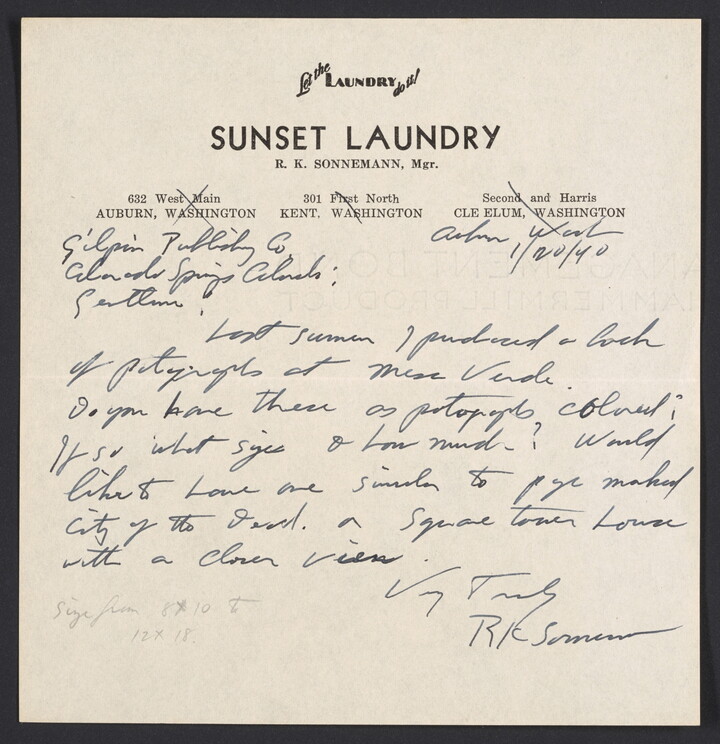 Let the LAUNDRY do it!
SUNSET LAUNDRY
R. K. SONNEMANN, Mgr.
632 West Main 301 First North Second and Harris
AUBURN, WASHINGTON KENT, WASHINGTON CLE ELUM, WASHINGTON
Auburn Wash
1/20/40
Gilpin Publishing Co
Colorado Springs Colorado:
Gentlemen:
Last summer I purchased a book
of potographs at Mesa Verde.
Do you have these as potographs colored?
If so what sizes & how much? Would
like to have one similar to page marked
City of the Dead. or Square tower house
with a closer view.
Very Truly
RK Sonnemann
Size from 8x10 to
12x18.